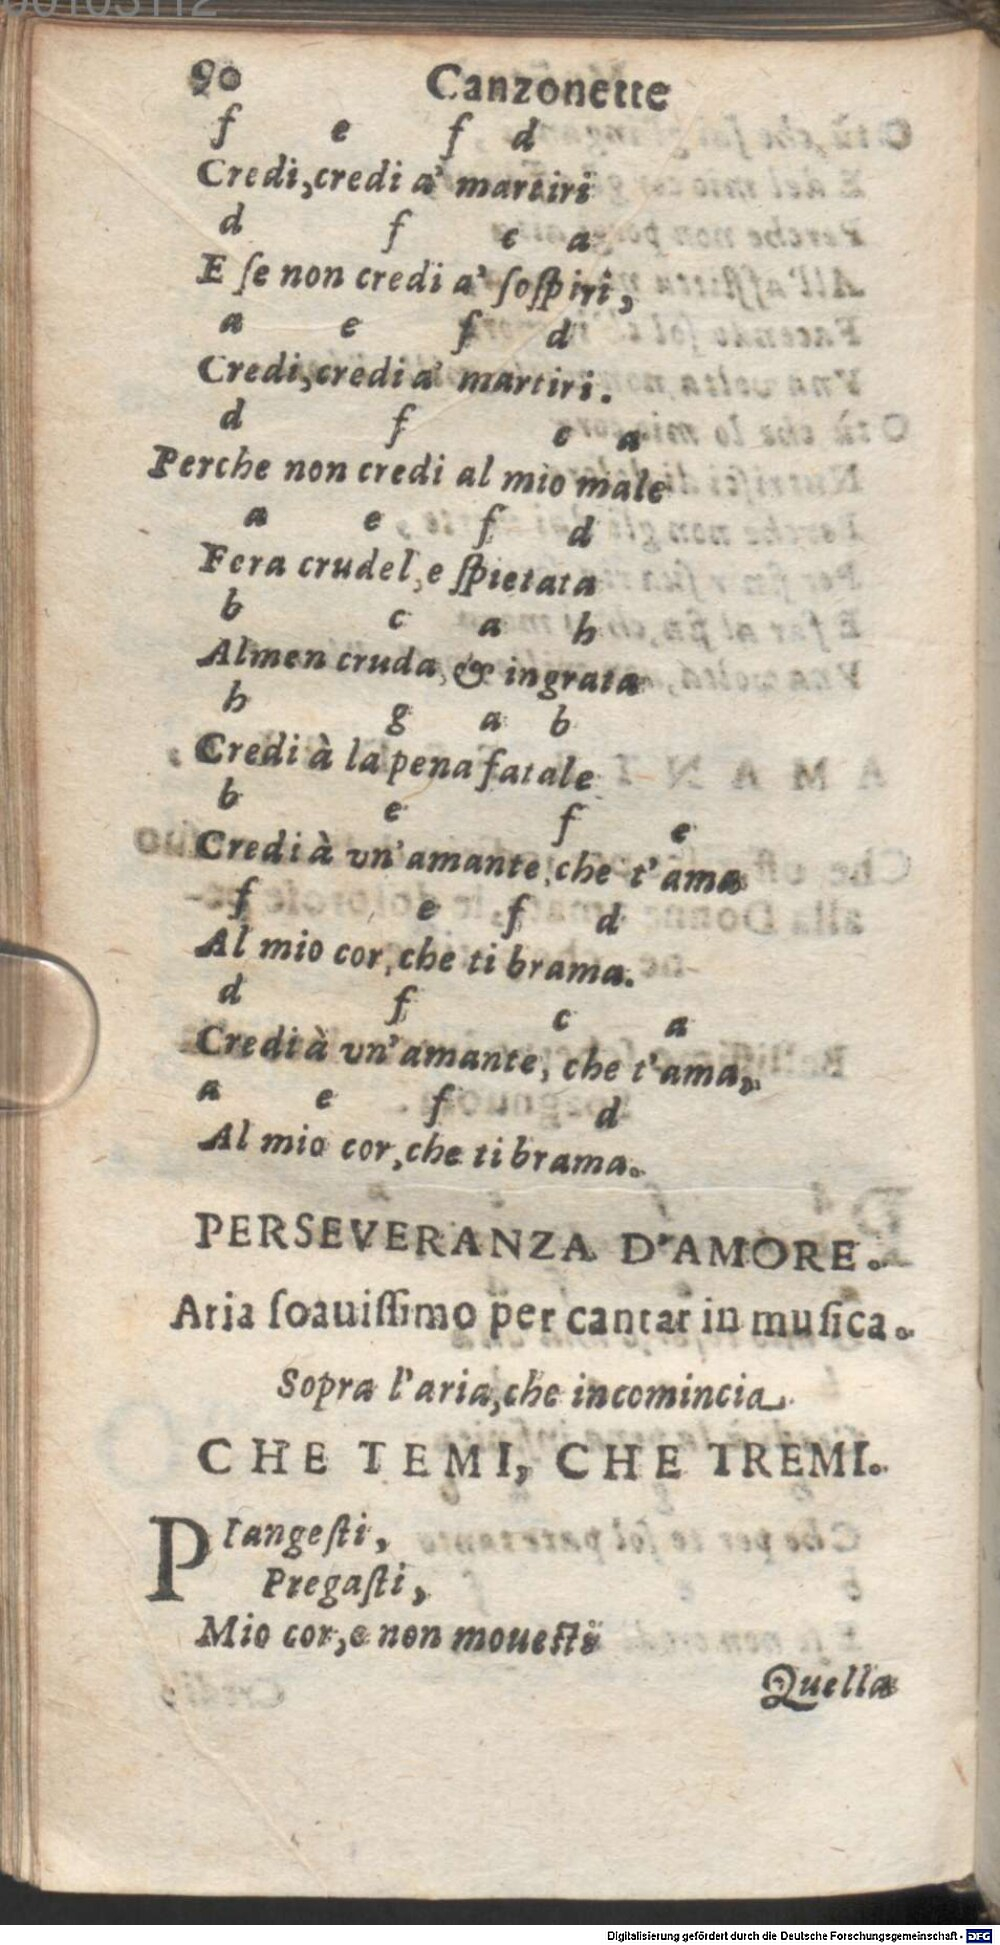 90 Canzonette
f e f d
Credi, credi a' martiri
d f c a
E ſe non credi a' ſoſpiri,
a e f d
Credi, credi a' martiri.
d f c a
Perche non credi al mio male
a e f d
Fera crudel, e ſpietata
b c a h
Almen cruda, & ingrata
h g a b
Credi à la pena fatale
b e f e
Credi à vn'amante, che t'ama
f e f d
Al mio cor, che ti brama.
d f c a
Credi à vn'amante, che t'ama,
a e f d
Al mio cor, che ti brama.
PERSEVERANZA D'AMORE.
Aria ſoauiſſimo per cantar in muſica.
Sopra l'aria, che incomincia
CHE TEMI, CHE TREMI.
PIangeſti,
Pregaſti,
Mio cor, e non moueſti
Quella
Digitalisierung gefördert durch die Deutsche Forschungsgemeinschaft - DFG